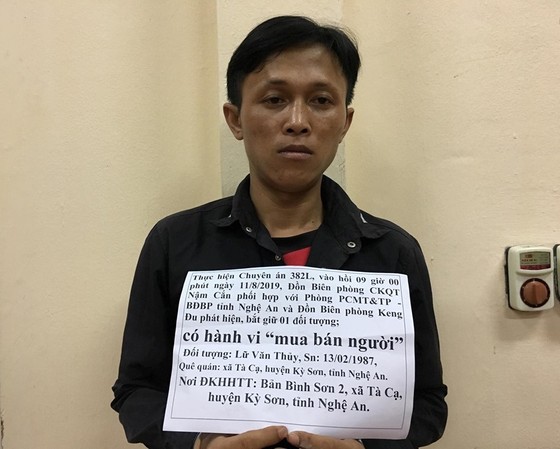 Thực hiện Chuyên án 382L, vào hồi 09 giờ 00
phút ngày 11/8/2019, Đồn Biên phòng CKQT
Nậm Cắn phối hợp với Phòng PCMT&TP -
BĐBP tỉnh Nghệ An và Đồn Biên phòng Keng
Đu phát hiện, bắt giữ 01 đối tượng;
có hành vi “mua bán người”
Đối tượng: Lữ Văn Thủy, Sn: 13/02/1987,
Quê quán: xã Tà Cạ, huyện Kỳ Sơn, tỉnh Nghệ An.
Nơi ĐKHHTT: Bản Bình Sơn 2, xã Tà Cạ,
huyện Kỳ Sơn, tỉnh Nghệ An.